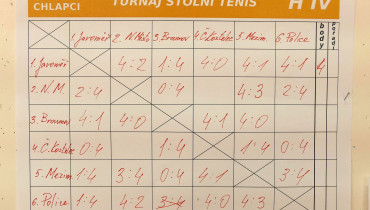 CHLAPCI TURNAJ STOLNÍ TENIS H IV
1. Jaroměř 2. N. Město 3. Broumov 4. Č. Kostelec 5. Mezim 6. Police body pořadí
1. Jaroměř 4:2 1:4 4:0 4:1 4:1 4
2. N.M. 2:4 0:4 4:3 2:4
3. Broumov 4:1 4:0 4:1 4:0
4. Č. Kostelec 0:4 1:4 1:4 0:4
5. Mezim 1:4 3:4 0:4 4:1 3:4
6. Police 1:4 4:2 3:4 4:0 4:3